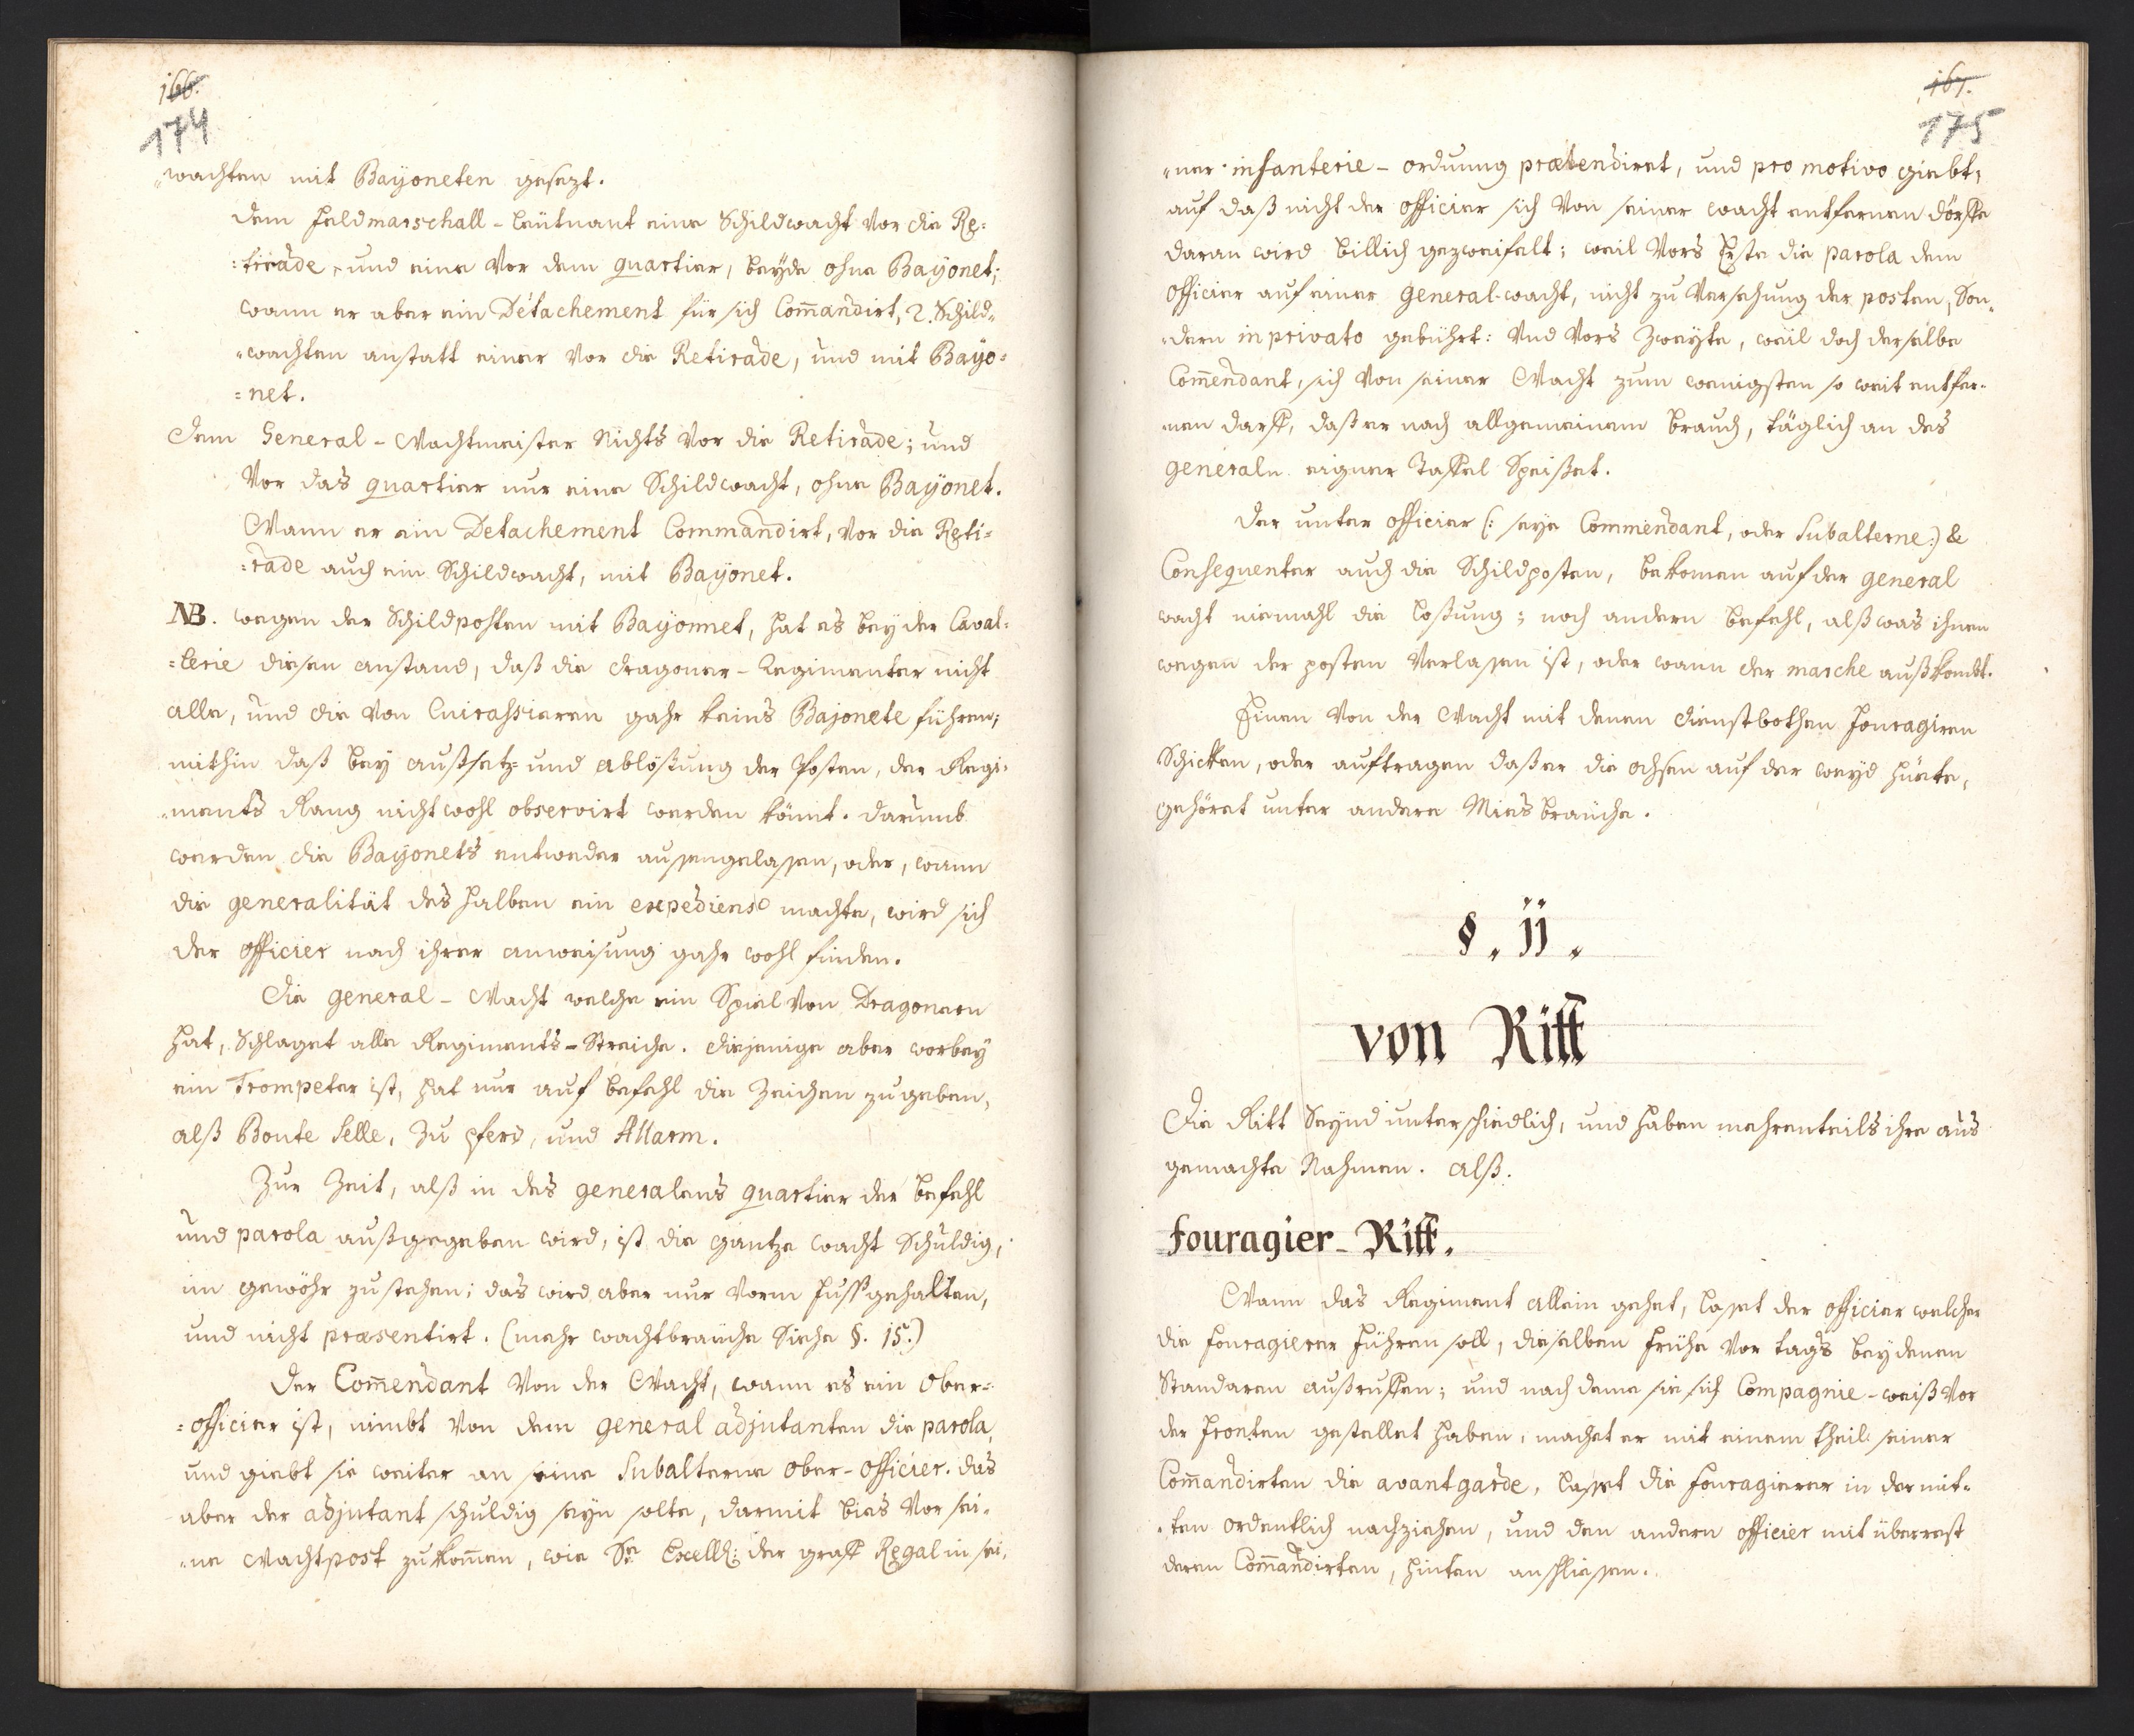 166.
174
„wachten mit Bayoneten gesezt.
dem Feldmarschall-Leütnant eine Schildwacht vor die Re=
=tirade, und eine vor dem quartier, beyde ohne Bayonet;
wann er aber ein Détachement für sich Com̅andirt, 2. Schild„
„wachten anstatt einer vor die Retirade, und mit Bayo=
=net.
dem General-Wachtmeister Nichts vor die Retirade; und
vor das quartier nur eine Schildwacht, ohne Bayonet.
Wann er ein Detachement Commandirt, vor die Reti=
=rade auch ein Schildwacht, mit Bayonet.
NB. wegen der Schildposten mit Bayonnet, hat es bey der Caval=
=lerie diesen anstand, daß die dragoner-Regimenter nicht
alle, und die von Cuirassieren gahr keins Bajonete führen;
mithin daß bey außsetz- und ablößung der Posten, der Regi„
„ments Rang nicht wohl observirt werden könnt. darumb
werden die Bayonets entweder aussengelassen, oder, wann
die generalität deshalben ein expediens machte, wird sich
der officier nach ihrer anweisung gahr wohl finden.
Die general-Wacht welche ein Spiel von Dragonern
hat, Schlaget alle Regiments-Streiche. diejenige aber worbey
ein Trompeter ist, hat nur auf befehl die Zeichen zu geben,
alß Boute Selle, Zu pferd, und Allarm.
Zur Zeit, alß in des generalens quartier der befehl
und parola außgegeben wird, ist die gantze wacht Schuldig,
im gewöhr zu stehen; das wird aber nur vorm Fuß gehalten,
und nicht præsentirt. (mehr wachtbraüche Siehe §. 15.)
Der Com̅endant von der Wacht, wann es ein ober=
=officier ist, nimbt von dem general adjutanten die parola,
und giebt sie weiter an seine Subalterne ober-officier. das
aber der adjutant schuldig seyn solte, darmit bies vor sei„
„ne Wachtpost zu kom̅en, wie Se Excell: der graff Regal in sei„
167.
175
„ner infanterie-ordnung prætendiret, und pro motivo giebt,
auf daß nicht der officier sich von seiner wacht entfernen dörffe
daran wird billich gezweifelt; weil vors Erste die parola dem
officier auf einer general-wacht, nicht zu versehung der posten, Son„
„dern in privato gebührt: und vors zweyte, weil doch derselbe
Com̅endant, sich von seiner Wacht zum wenigsten so weit entfer„
„nen darff, daß er nach allgemeinem brauch, täglich an des
generaln eigner Taffel Speißet.
der unter officier (: seye Commendant, oder Subalterne:) &
Consequenter auch die Schildposten, bekomen auf der general
wacht niemahl die Loßung; noch andern befehl, alß was ihnen
wegen der posten verlassen ist, oder wann der marche außkombt.
Einen von der Wacht mit denen dienstbothen Fouragiren
Schicken, oder auftragen daß er die ochsen auf der weyd hüete,
gehöret unter andere Miesbraüche.
§. 11.
von Ritt
Die Ritt Seynd unterschiedlich, und haben mehrenteils ihre aus
gemachte Nahmen. alß.
fouragier-Ritt.
Wann das Regiment allein gehet, lasset der officier welcher
die fouragierer führen soll, dieselben frühe vor tags bey denen
Standaren außruffen; und nach deme sie sich Compagnie-weiß vor
der fronten gestellet haben, machet er mit einem theil seiner
Com̅andirten die avantgarde, lasset die fouragierer in der mit„
„ten ordentlich nachziehen, und den andern officier mit überrest
deren Com̅andirten, hinten anschliessen.